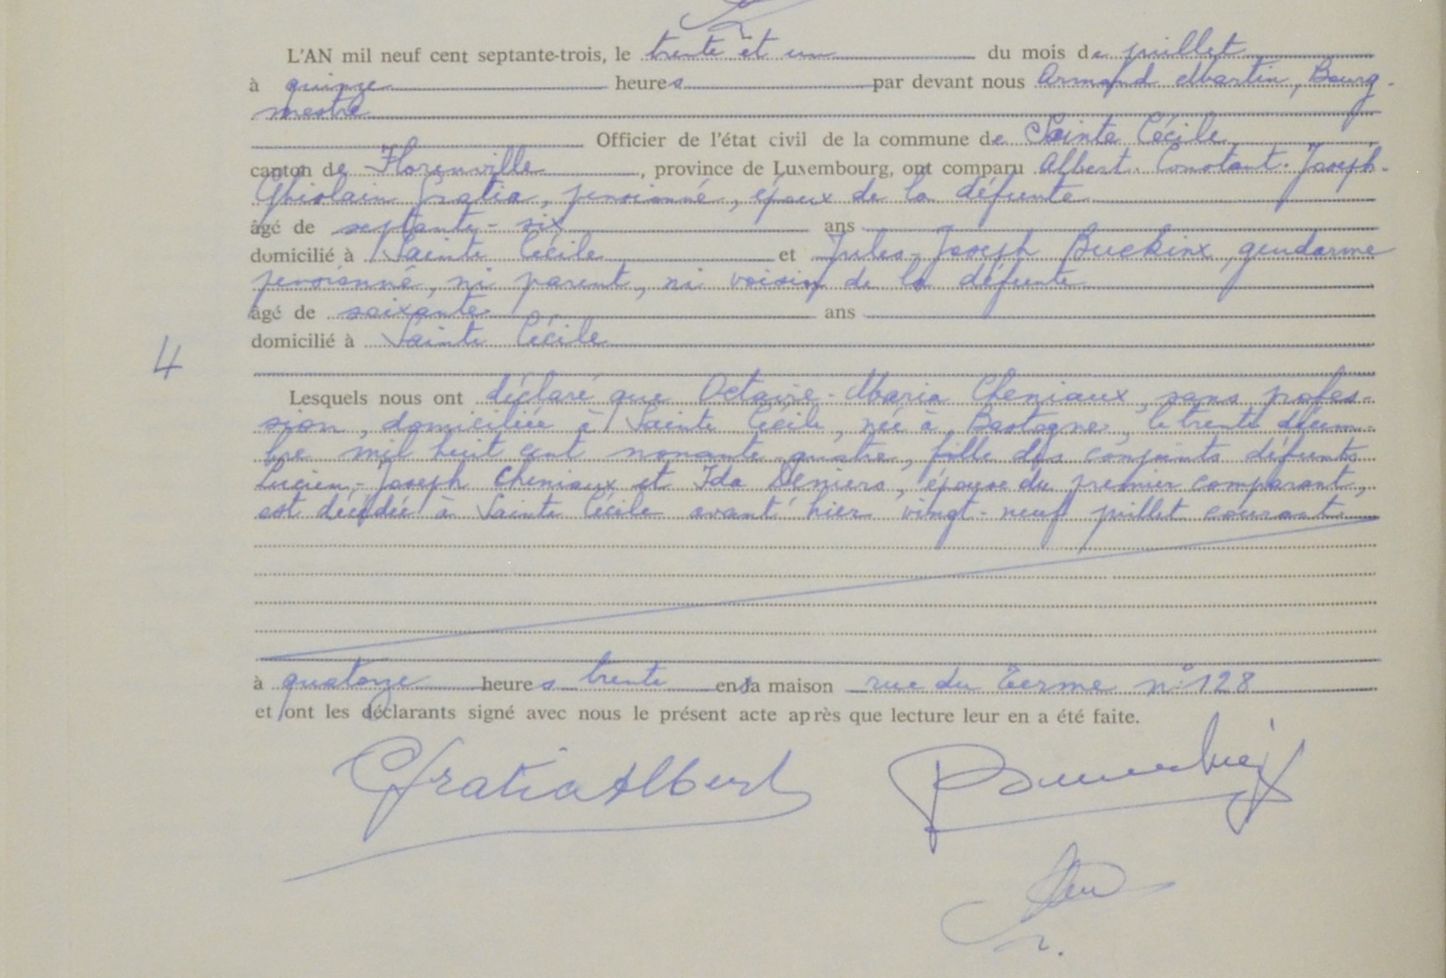 L'AN mil neuf cent septante-trois, le trente et un du mois de juillet
à quinze heures par devant nous Armand Martin, Bourg-
mestre
Officier de l'état civil de la commune de Sainte Cécile
canton de Florenville, province de Luxembourg, ont comparu Albert-Constant-Joseph-
Ghislain Gratia, pensionné, époux de la défunte
âgé de septante-six ans
domicilié à Sainte Cécile et Jules-Joseph Buckinx, gendarme
pensionné, ni parent, ni voisin de la défunte
âgé de soixante ans
domicilié à Sainte Cécile
4
Lesquels nous ont déclaré que Octavie-Maria Cheniaux, sans profes-
sion, domiciliée à Sainte Cécile, née à Bastogne, le trente décem-
bre mil huit cent nonante quatre, fille des conjoints défunts
Lucien-Joseph Cheniaux et Ida Deniers, épouse du premier comparant,
est décédée à Sainte Cécile avant hier vingt-neuf juillet courant
à quatorze heures trente en sa maison rue du Terme n° 128
et ont les déclarants signé avec nous le présent acte après que lecture leur en a été faite.
Gratia Albert